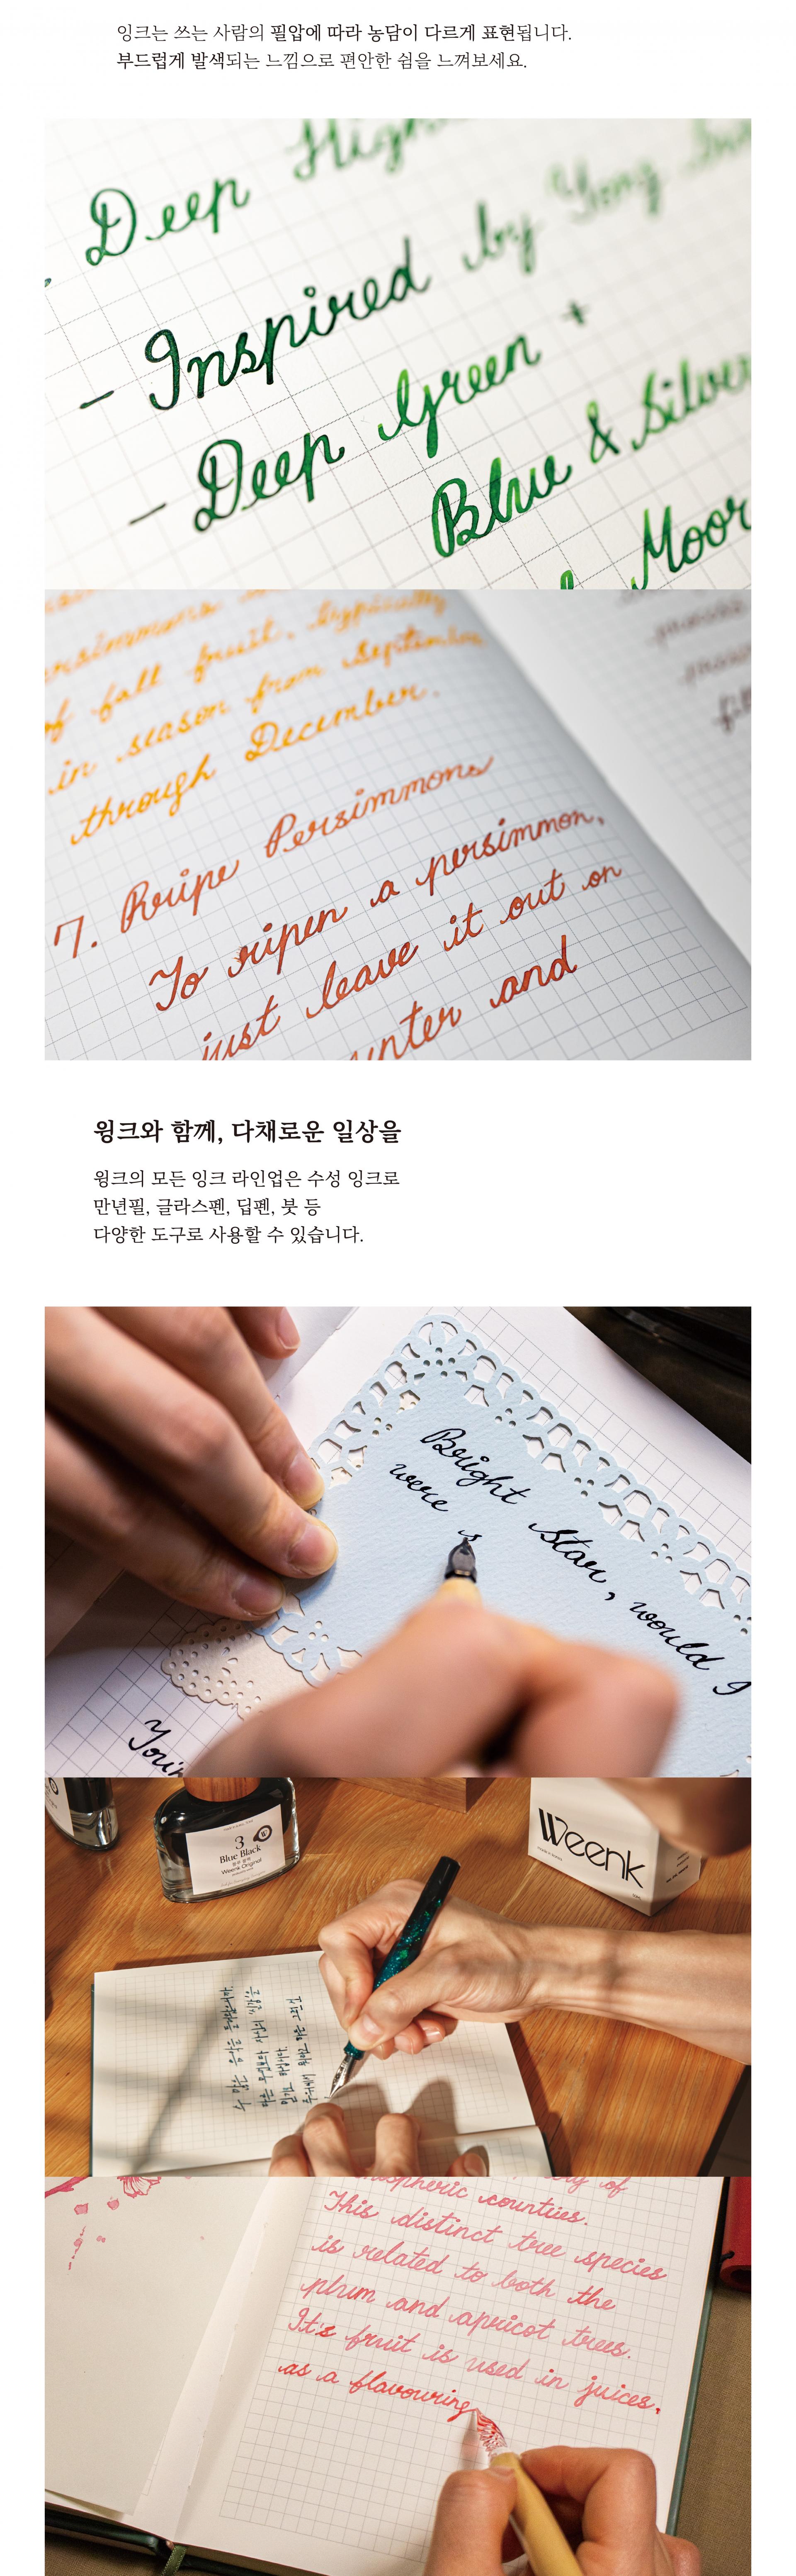 잉크는 쓰는 사람의 필압에 따라 농담이 다르게 표현됩니다.
부드럽게 발색되는 느낌으로 편안한 쉼을 느껴보세요.
Deep High
- Inspired by Yong
- Deep Green +
Blue & Silver
Moon
persimmons
of fall fruit, typically
in season from September
through December.
7. Ripe Persimmons
To ripen a persimmon,
just leave it out on
and
윙크와 함께, 다채로운 일상을
윙크의 모든 잉크 라인업은 수성 잉크로
만년필, 글라스펜, 딥펜, 붓 등
다양한 도구로 사용할 수 있습니다.
Bright Star, would I
were s
3
Blue Black
Weenk Original
Weenk
of
counties.
This distinct tree species
is related to both the
plum and apricot trees.
It's fruit is used in juices.
as a flavouring